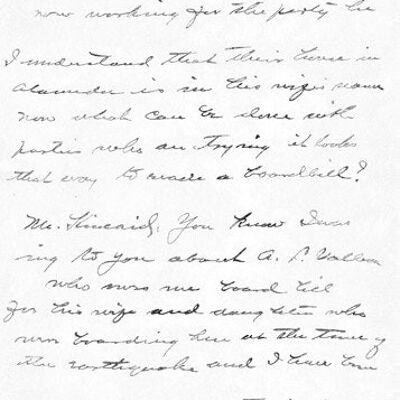 now working for the party he
I understand that their house in
Alameda is in his wife's name
now what can be done with
parties who are trying it looks
that way to evade a boardbill?
Mr. Kincaid: You know I was
ing to you about A. P.
who owes me board bill
for his wife and daughter who
were boarding here at the time of
the earthquake and I have